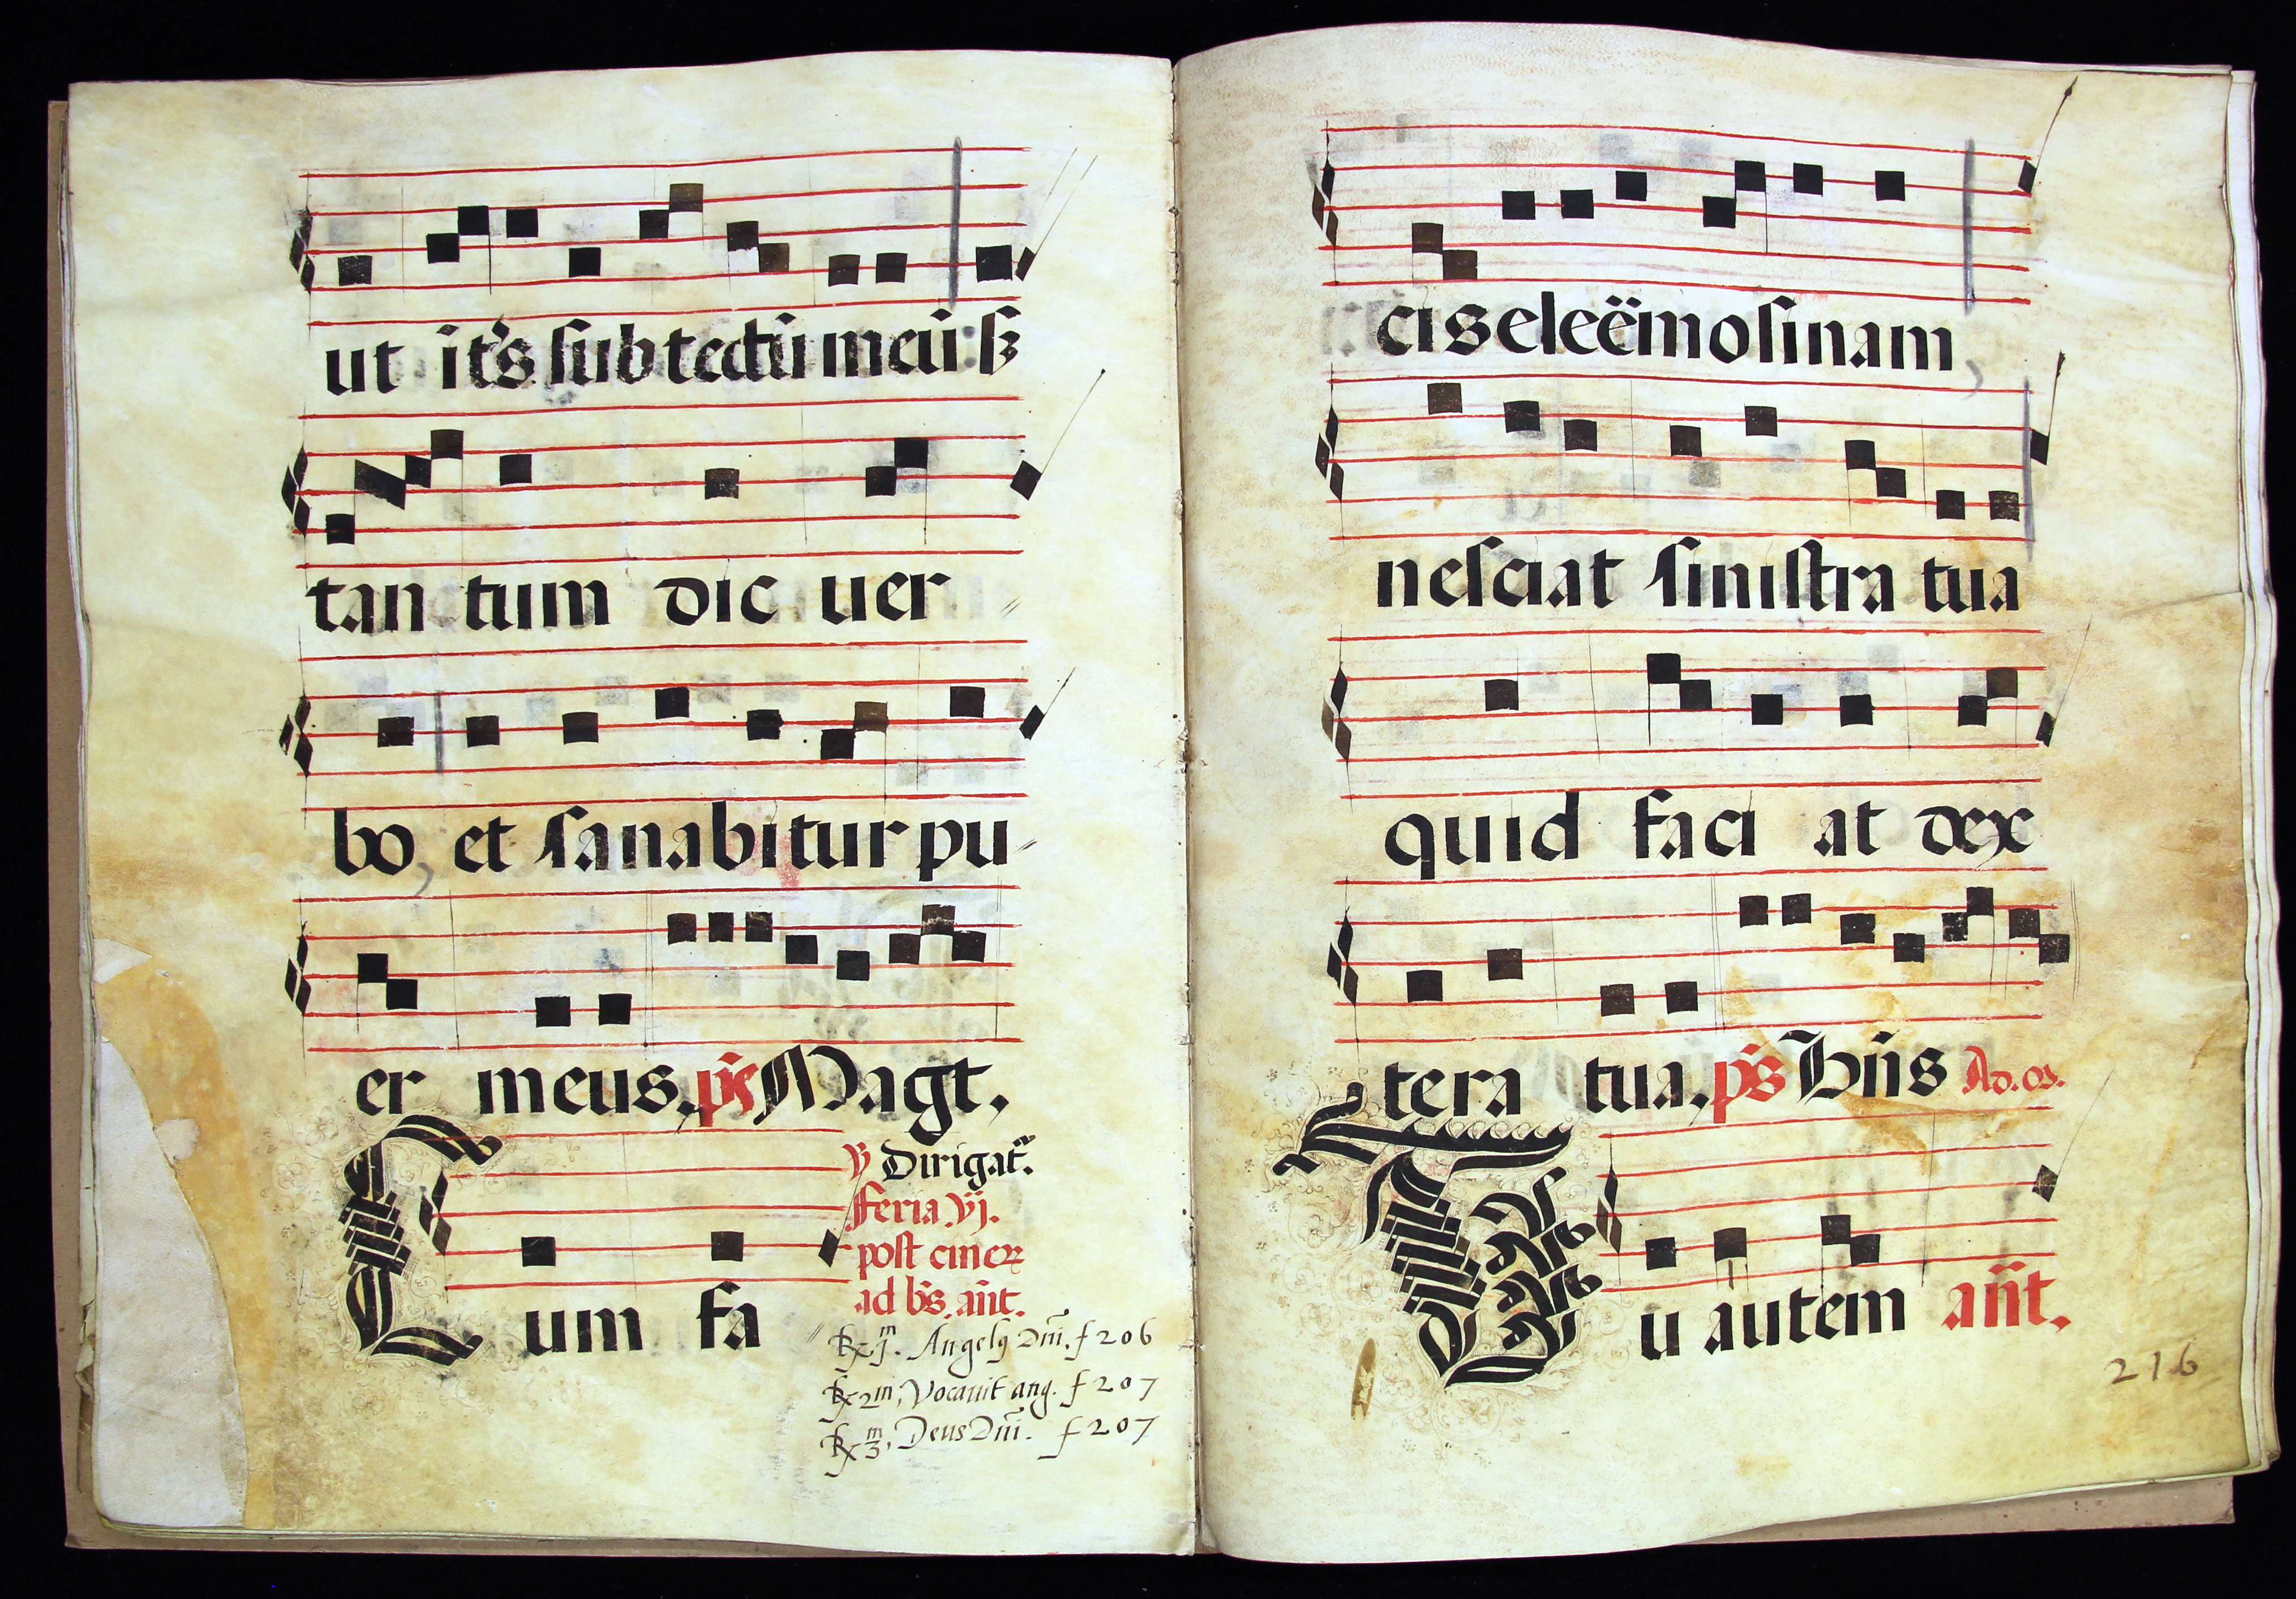 ut it̃s sub tectũ meũ: sꝫ
tan tum dic uer //
bo, et sanabitur pu-
er meus, ps̃ Magt̃.
Cum fa //
℣ Dirigat̃.
Feria vj.
post cinerꝝ
ad bs̃. añt.
℟ j.m Angelꝰ Dñi. f 206
℟ 2m, Vocavit ang. f 207
℟ 3m, Deus Dñi. f 207
cis eleëmosinam,
nesciat sinistra tua
quid faci at dex
tera tua, ps̃ Bñs Ad. os.
Tu autem añt.
216